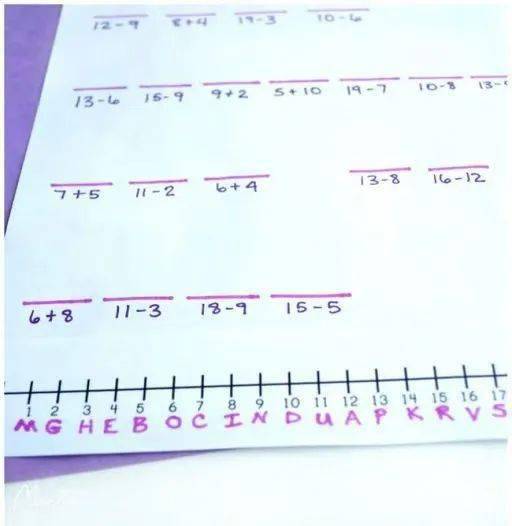 12-9 8+4 19-3 10-6
13-6 15-9 9+2 5+10 19-7 10-8
7+5 11-2 6+4 13-8 16-12
6+8 11-3 18-9 15-5
1 2 3 4 5 6 7 8 9 10 11 12 13 14 15 16 17
M G H E B O C I N D U A P K R V S